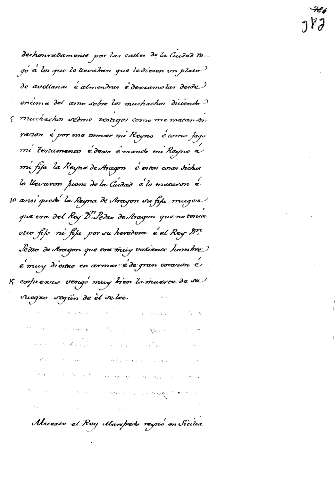 387
deshonradamente por las calles de la Ciudad ro
gó a los que lo llevaban que le diesen un plato
de avellanas é almendras é derramolas desde
encima del asno sobre los muchachos diciendo
5 muchachos sedme testigos como me matan sin
razon é por me tomar mi Reyno é como fago
mi testamento é dexo é mando mi Reyno a
mi fija la Reyna de Aragon é estas cosas dichas
lo llevaron fuera de la Ciudad é lo mataron é
10 ansi quedó la Reyna de Aragon su fija muger
que era del Rey Dn. Pedro de Aragon que no tenia
otro fijo ni fija por su heredera é el Rey Dn.
Pedro de Aragon que era muy valiente hombre
é muy diestro en armas é de gran corazon é
15 esfuerzo vengó muy bien la muerte de su
suegro segun de él se lee.
Muerto el Rey Manfredo reynó en Sicilia